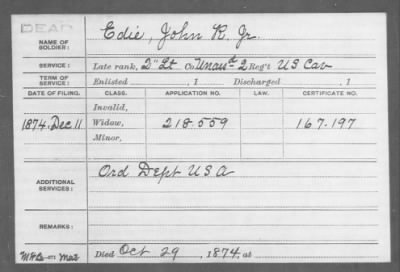 DEAD
NAME OF SOLDIER: Edie, John R. Jr.
SERVICE: Late rank, 2" Lt Co. Unass^d 2 Reg't US Cav
TERM OF SERVICE: Enlisted , 1 Discharged , 1
DATE OF FILING. CLASS. APPLICATION NO. LAW. CERTIFICATE NO.
Invalid,
1874, Dec 11 Widow, 218.559 167.197
Minor,
ADDITIONAL SERVICES: Ord Dept U S A
REMARKS:
Died Oct 29, 1874, at